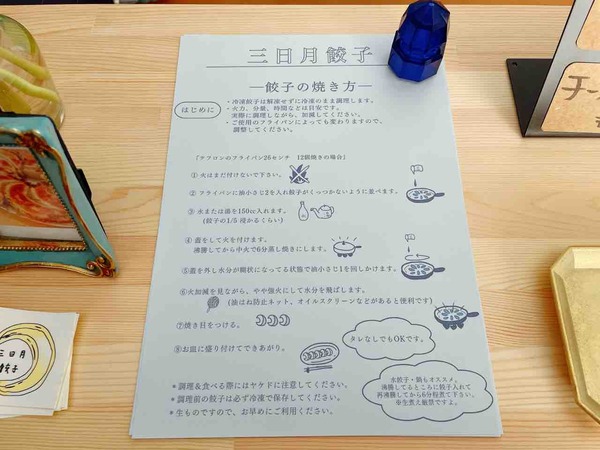 三日月餃子
―餃子の焼き方―
はじめに
・冷凍餃子は解凍せずに冷凍のまま調理します。
・火力、分量、時間などは目安です。
実際に調理しながら、加減してください。
・ご使用のフライパンによっても変わりますので、
調整してください。
「テフロンのフライパン26センチ 12個焼きの場合」
①火はまだ付けないで下さい。
②フライパンに油小さじ2を入れ餃子がくっつかないように並べます。
③水または湯を150cc入れます。
(餃子の1/5 浸かるくらい)
④蓋をして火を付けます。
沸騰してから中火で6分蒸し焼きにします。
⑤蓋を外し水分が糊状になってる状態で油小さじ1を回しかけます。
⑥火加減を見ながら、やや強火にして水分を飛ばします。
(油はね防止ネット、オイルスクリーンなどがあると便利です)
⑦焼き目をつける。
⑧お皿に盛り付けてできあがり。
タレなしでもOKです。
水餃子・鍋もオススメ。
沸騰してるところに餃子入れて
再沸騰してから6分程煮て下さい。
※生煮え厳禁ですよ。
＊調理&食べる際にはヤケドに注意してください。
＊調理前の餃子は必ず冷凍で保存してください。
＊生ものですので、お早めにご利用ください。
三日月
餃子
チー